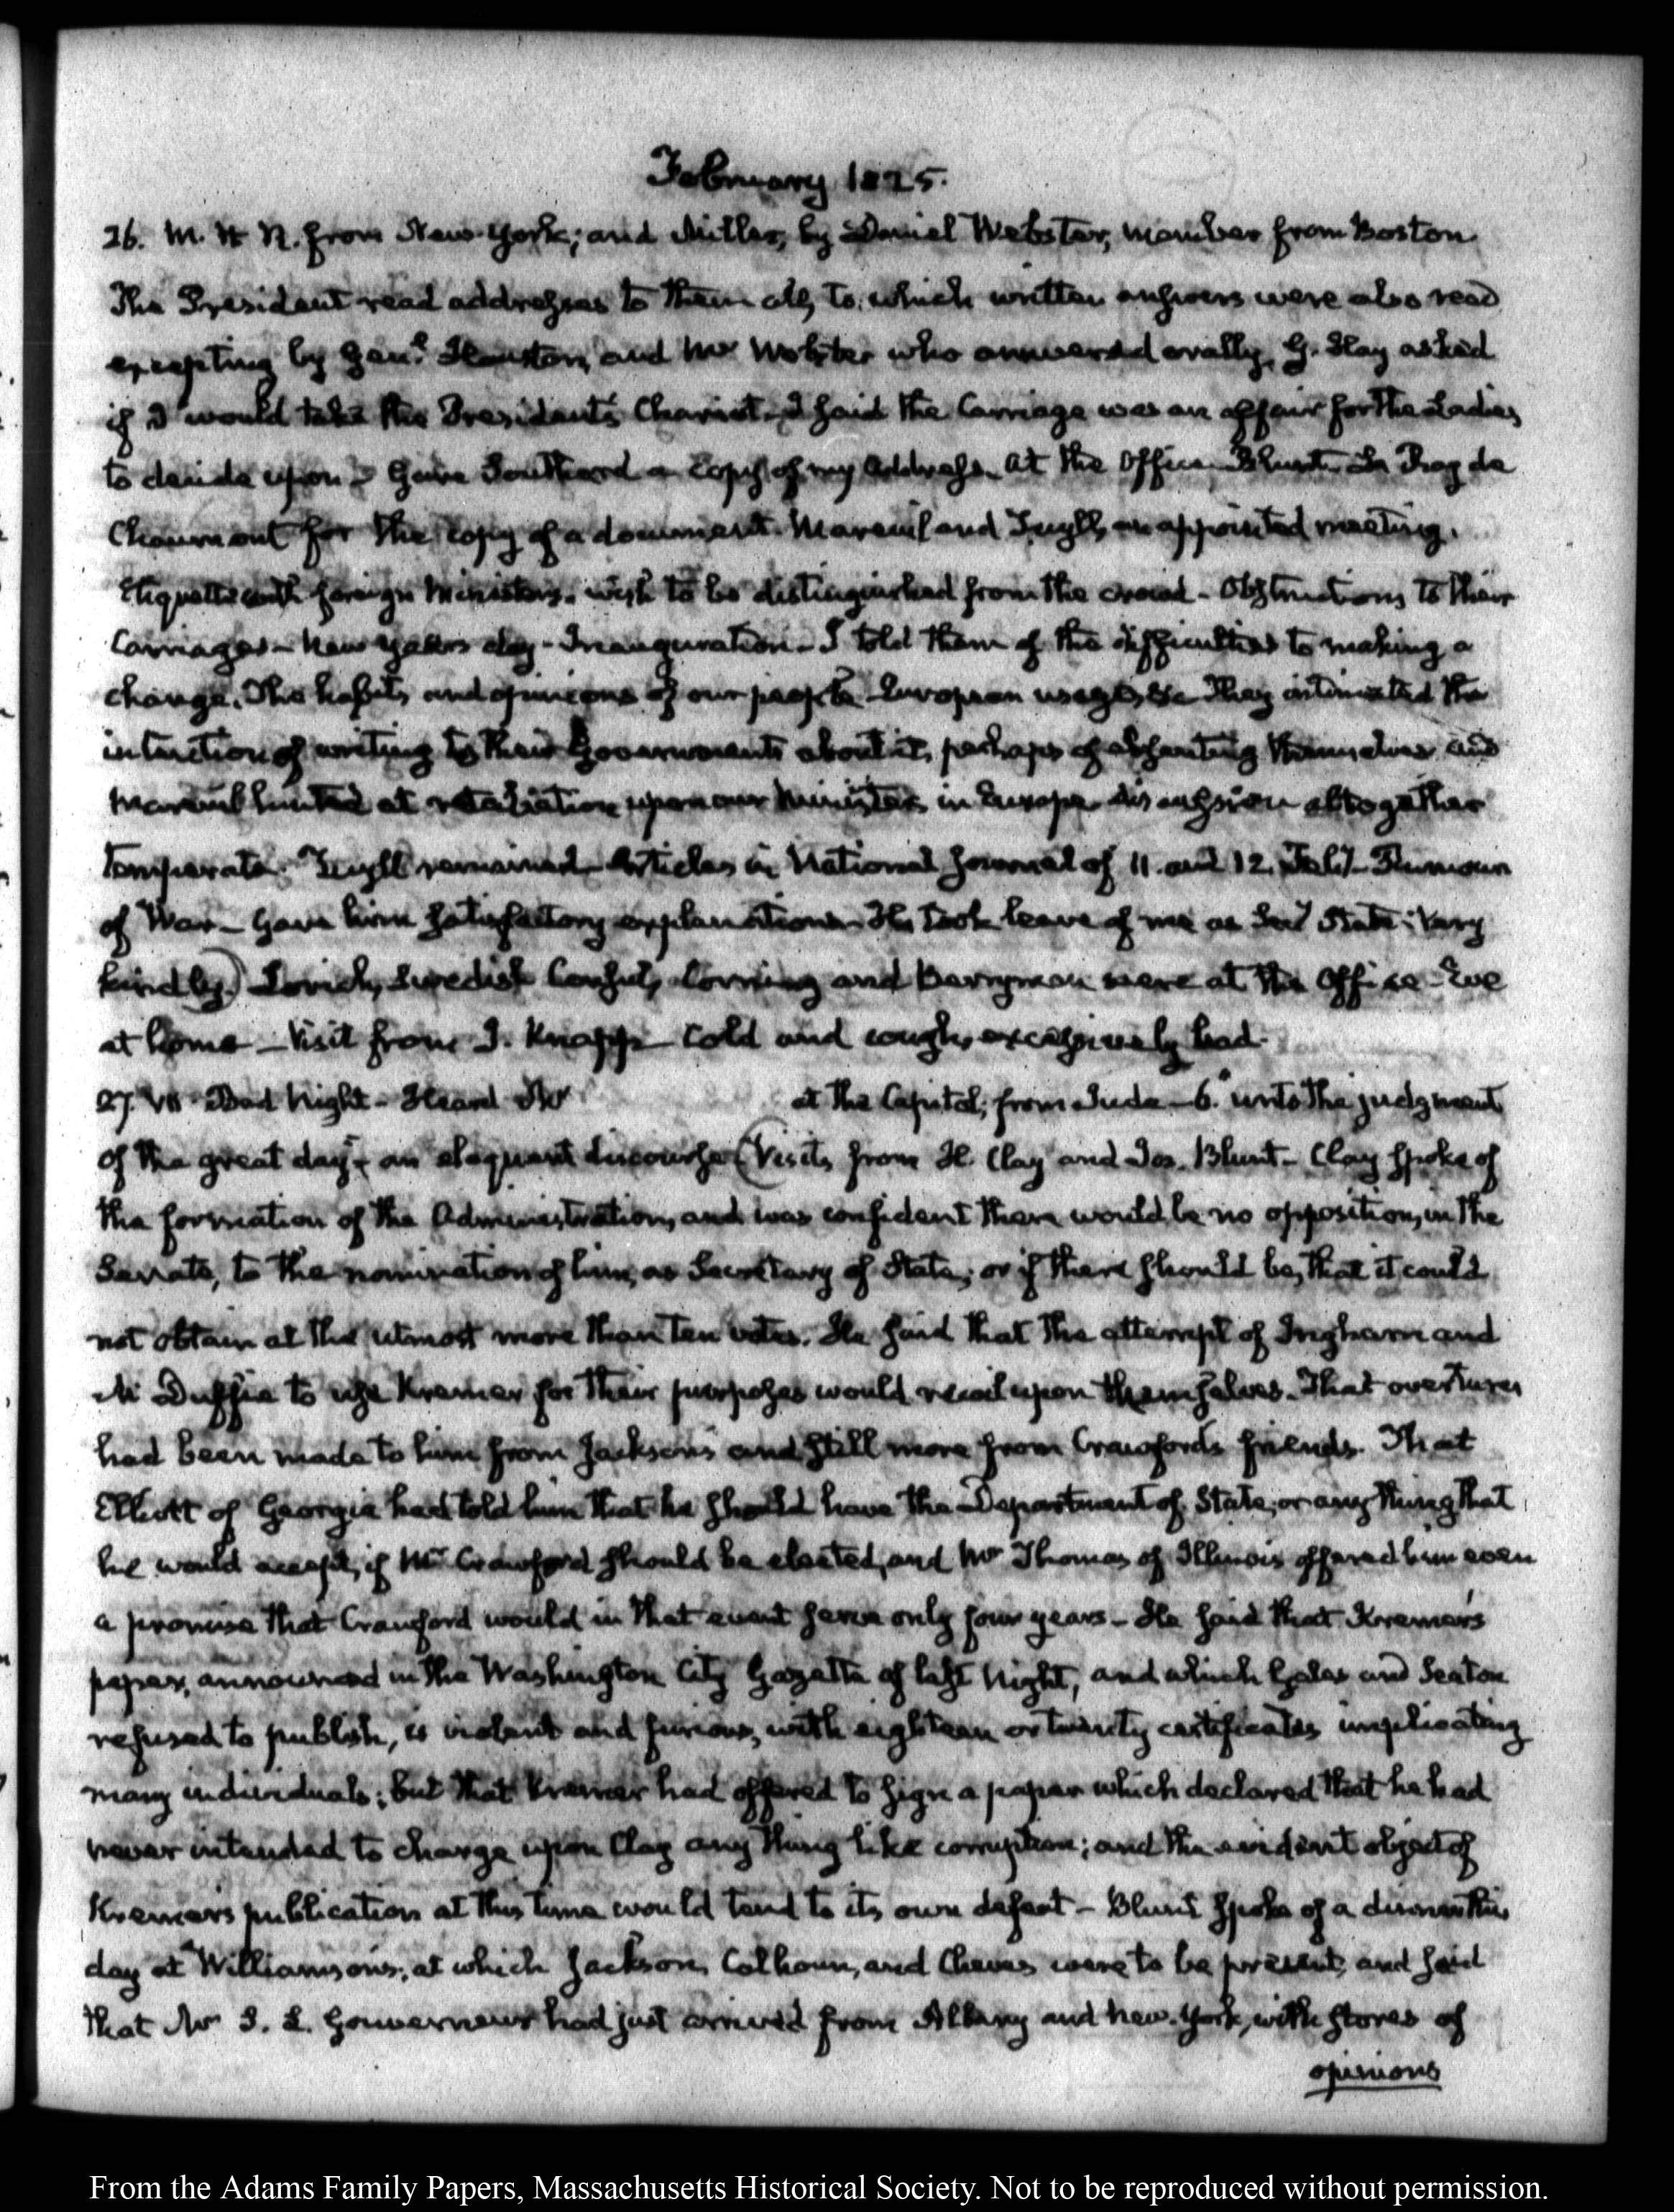 February 1825.
26. from New-York; and Miller, by Daniel Webster, member from Boston
The President read addresses to them all, to which written answers were also read
excepting by Genl. Houston, and Mr Webster who answered orally. G. Hay asked
if I would take the President's Chariot. I said the Carriage was an affair for the Ladies
to decide upon. Gave Southard a copy of my Address. At the Office Blunt. Le Ray de
Chaumont for the copy of a document. Mareuil and Tuyll, an appointed meeting.
Etiquette with foreign Ministers. wish to be distinguished from the crowd - Obstructions to their
Carriages - New Year's day - Inauguration - I told them of the difficulties to making a
change. The habits, and opinions of our people European usages, &c They intimated the
intention of writing to their Governments about it, perhaps of absenting themselves and
Mareuil hinted at retaliation upon our Ministers in Europe. discussion altogether
temperate. Tuyll remained. Articles in National Journal of 11. and 12. July - Rumours
of War - Gave him satisfactory explanations. He took leave of me as Secy State: very
kindly.) Swedish Consul, Corning and Berryman were at the Office - Eve
at home - Visit from J. Knapp - Cold and cough, excessively bad.
27. VII. Bad Night - Heard Mr at the Capitol; from Jude - 6. "unto the judgment
of the great day" - an eloquent discourse (Visits from H. Clay and Jos. Blunt - Clay spoke of
the formation of the Administration, and was confident there would be no opposition, in the
Senate, to the nomination of him, as Secretary of State; or if there should be, that it could
not obtain at the utmost more than ten votes. He said that the attempt of Ingham and
Mc Duffie to use Kremer for their purposes would recoil upon themselves. That overtures
had been made to him from Jackson's and still more from Crawford's friends. That
Elliott of Georgia had told him that he should have the Department of State, or any thing that
he would accept, if Mr Crawford should be elected, and Mr Thomas of Illinois offered him even
a promise that Crawford would in that event serve only four years - He said that Kremer's
paper, announced in the Washington City Gazette of last Night, and which Gales and Seaton
refused to publish, is violent and furious, with eighteen or twenty certificates implicating
many individuals; but that Kremer had offered to sign a paper which declared that he had
never intended to charge upon Clay any thing like corruption; and the evident object of
Kremer's publication at this time would tend to its own defeat - Blunt spoke of a dinner this
day at Williamson's, at which Jackson, Calhoun, and Cheves were to be present, and said
that Mr S. L. Gouverneur had just arrived from Albany and New-York, with stores of
opinions
From the Adams Family Papers, Massachusetts Historical Society. Not to be reproduced without permission.